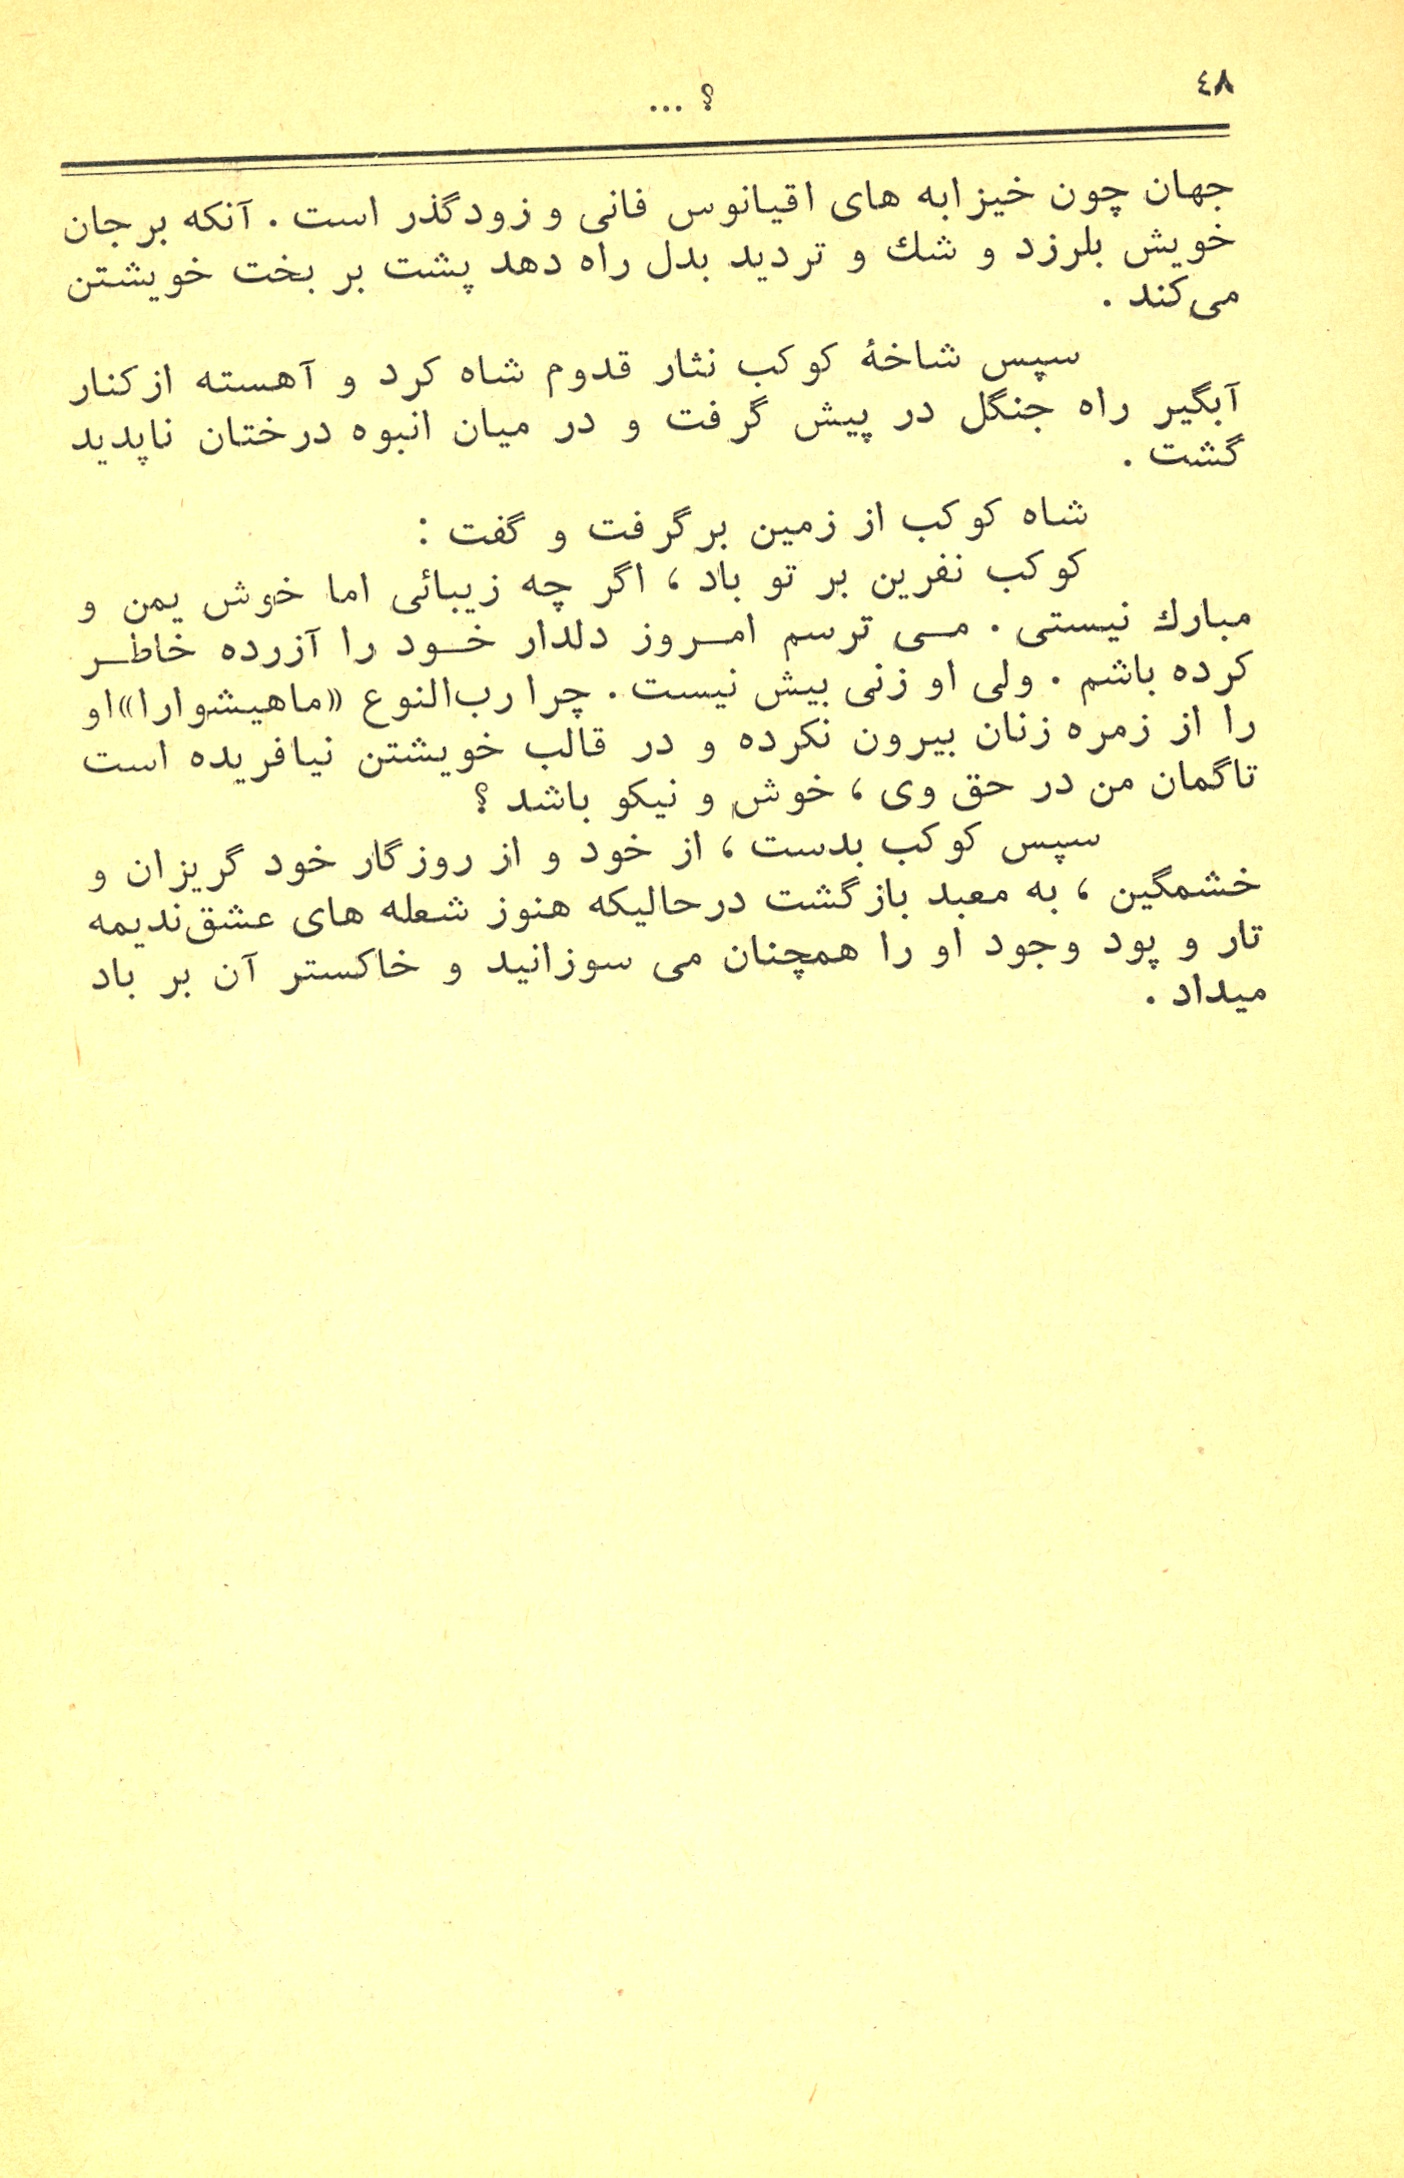 ٤٨
؟ ...
جهان چون خیزابه های اقیانوس فانی و زودگذر است . آنکه برجان
خویش بلرزد و شك و تردید بدل راه دهد پشت بر بخت خویشتن
می‌کند .
سپس شاخهٔ کوکب نثار قدوم شاه کرد و آهسته ازکنار
آبگیر راه جنگل در پیش گرفت و در میان انبوه درختان ناپدید
گشت .
شاه کوکب از زمین برگرفت و گفت :
کوکب نفرین بر تو باد ، اگر چه زیبائی اما خوش یمن و
مبارك نیستی . مـی ترسم امـروز دلدار خـود را آزرده خاطـر
کرده باشم . ولی او زنی بیش نیست . چرا رب‌النوع «ماهیشوارا» او
را از زمره زنان بیرون نکرده و در قالب خویشتن نیافریده است
تاگمان من در حق وی ، خوش و نیکو باشد ؟
سپس کوکب بدست ، از خود و از روزگار خود گریزان و
خشمگین ، به معبد بازگشت درحالیکه هنوز شعله های عشق‌ندیمه
تار و پود وجود او را همچنان می سوزانید و خاکستر آن بر باد
میداد .